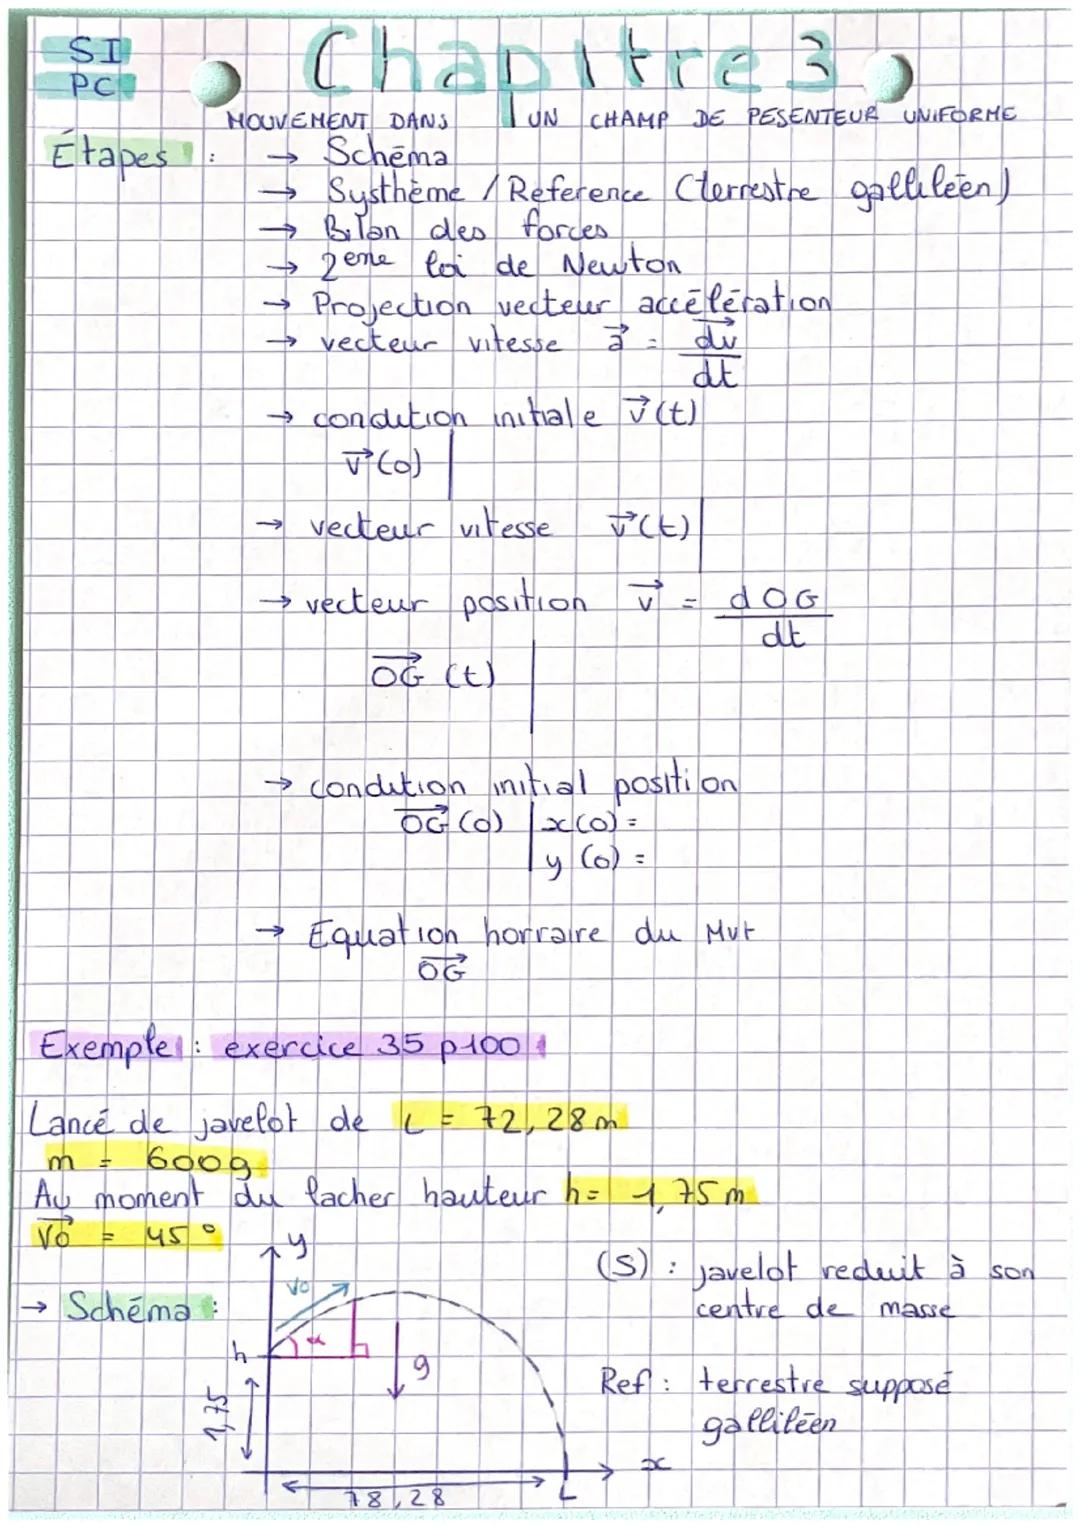 SI
PC
Chapitre 3
MOUVEMENT DANS UN CHAMP DE PESENTEUR UNIFORME
Étapes :
→ Schéma
→ Systhème / Réference (terrestre galliléen)
→ Bilan des forces
→ 2eme loi de Newton
→ Projection vecteur accélération
→ vecteur vitesse a⃗ = dv⃗
dt
→ condition initiale v⃗(t)
v⃗(0)
→ vecteur vitesse v⃗(t)
→ vecteur position v⃗ = dOG
dt
OG⃗ (t)
→ condition initial position
OG⃗ (0) x(0) =
y (0) =
→ Equation horraire du Mvt
OG⃗
Exemple : exercice 35 p100
Lancé de javelot de L = 72,28 m
m = 600g
Au moment du lacher hauteur h = 1,75 m
V⃗0 = 45°
→ Schéma :
y
V0
α
h
g
1,75
78,28
L
x
(S) : javelot reduit à son
centre de masse
Ref : terrestre supposé
galliléen